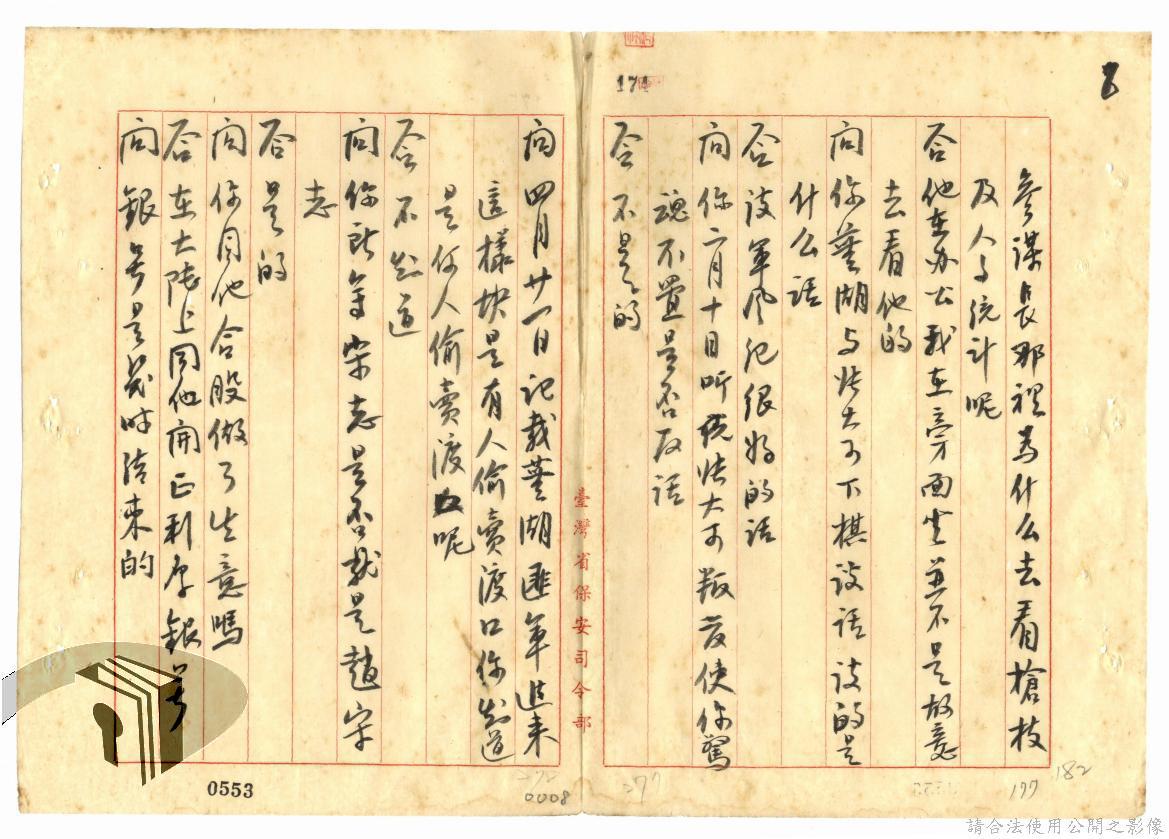 參謀長那裡為什么去看槍枝
及人与統計呢
答 他在办公我在旁面坐並不是故意
去看他的
问 你蕪湖与张大可下棋談話談的是
什么話
答 談軍风紀很好的話
问 你二月十日听説张大可叛变使你驚
魂不置是否反話
答 不是的
臺灣省保安司令部
问 四月廿一日记载蕪湖匪軍进来
這樣快是有人偷賣渡口你知道
是何人偷賣渡口呢
答 不知道
问 你所寫宋志是否就是趙宋
志
答 是的
问 你同他合股做了生意嗎
答 在大陸上同他開正利厚銀号
问 銀号是幾时结束的
174
0553
0008
272
277
177
182
請合法使用公開之影像